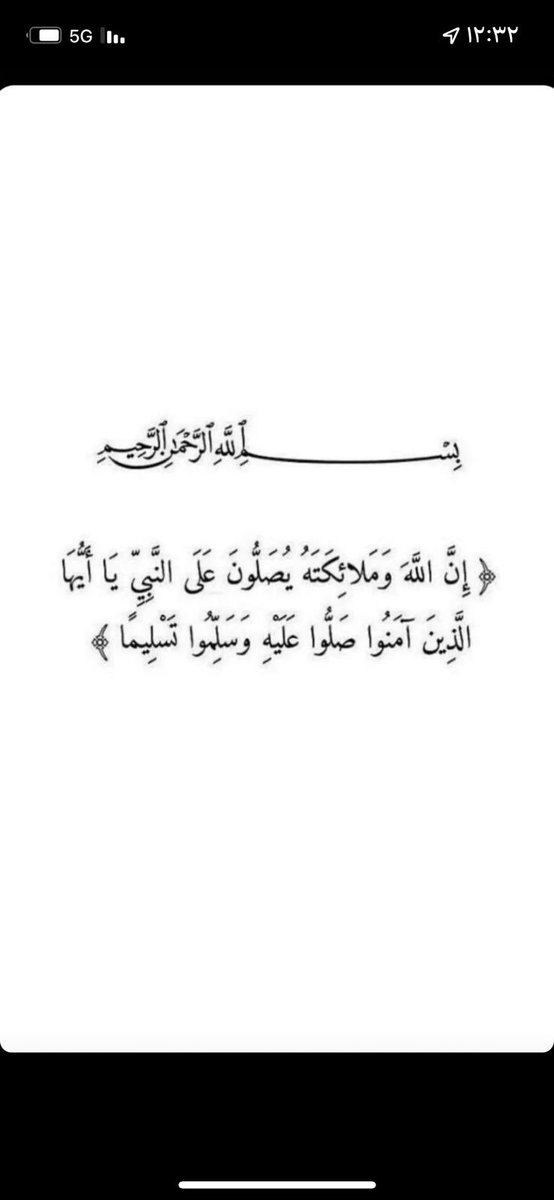 ١٢:٣٢ 5G
بِسْمِ اللَّهِ الرَّحْمَٰنِ الرَّحِيمِ
﴿ إِنَّ اللَّهَ وَمَلائِكَتَهُ يُصَلُّونَ عَلَى النَّبِيِّ يَا أَيُّهَا
الَّذِينَ آمَنُوا صَلُّوا عَلَيْهِ وَسَلِّمُوا تَسْلِيمًا ﴾